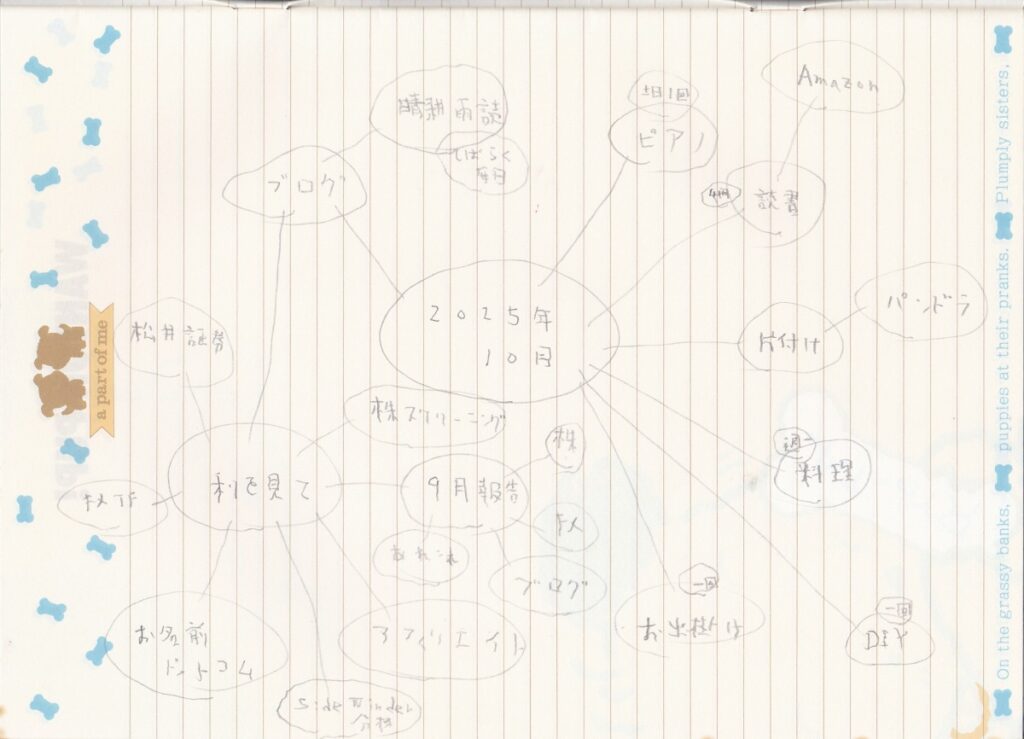 Amazon
5日1回
ピアノ
晴耕雨読
しばらく
毎日
ブログ
4冊
読書
2025年
10月
パンドラ
片付け
松井証券
株スクリーニング
株
週一
料理
利を見て
9月報告
FX
あれこれ
ブログ
一回
お出掛け
一回
DIY
お名前
ドットコム
アフィリエイト
Side
分析
a part of me
On the grassy banks, puppies at their pranks. Plumply sisters,